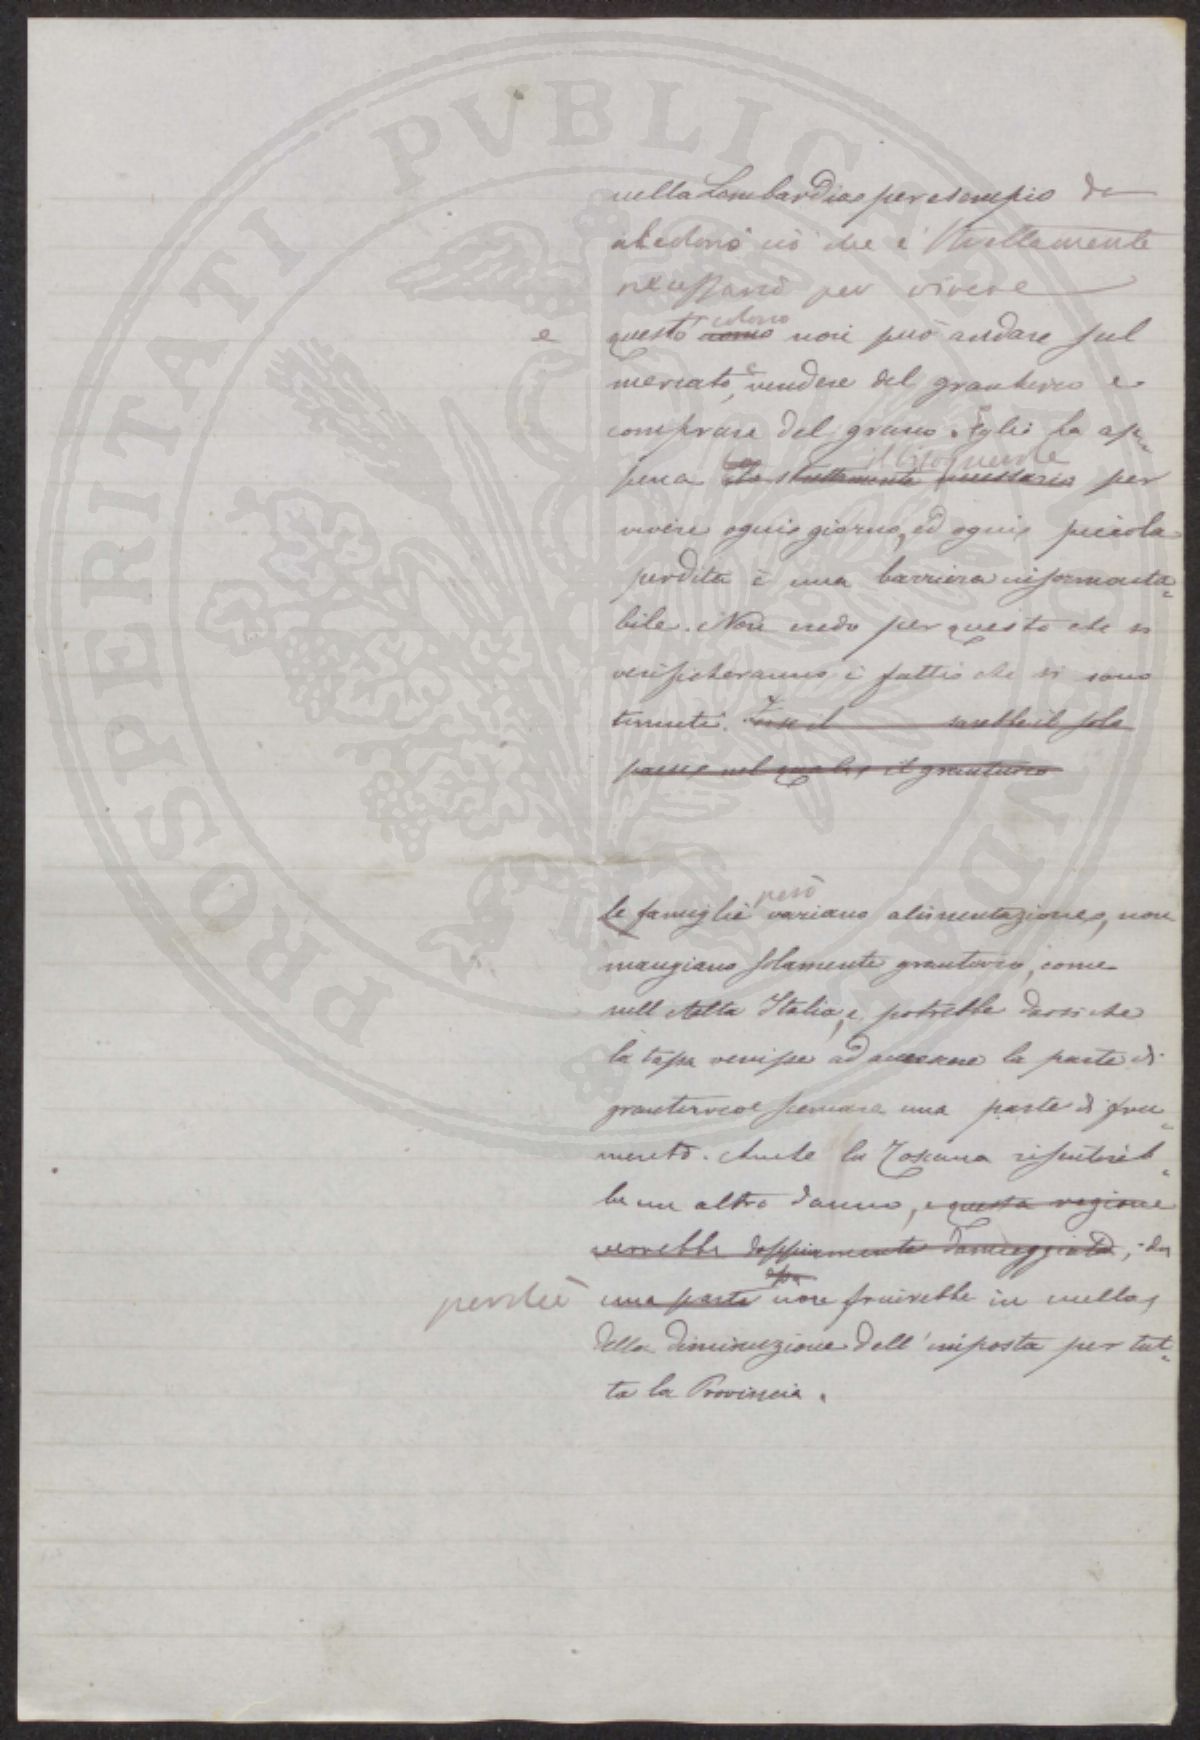 PROSPERITATI PVBLICAE
nella Lombardia per esempio da
al colono ciò che è strettamente
necessario per vivere
e questo uomo colono non può andare sul
mercato, e vendere del granturco e
comprare del grano. Egli ha ap=
pena lo strettamente necessario il bisognevole per
vivere ogni giorno, ed ogni piccola
perdita è una barriera insormonta=
bile. Non credo per questo che si
verificheranno i fatti che si sono
temuti. il sarebbe il solo
paese nel quale il granturco
le famiglie però variano alimentazione, non
mangiano solamente granturco, come
nell'Alta Italia, e potrebbe darsi che
la tassa venisse ad la parte di
granturco e scemare una parte di fru=
mento. Anche la Toscana risentireb=
be un altro danno, e questa regione
verrebbe doppiamente danneggiata, da
perchè una parte essa non fruirebbe in nulla
della diminuzione dell'imposta per tut=
ta la Provincia.